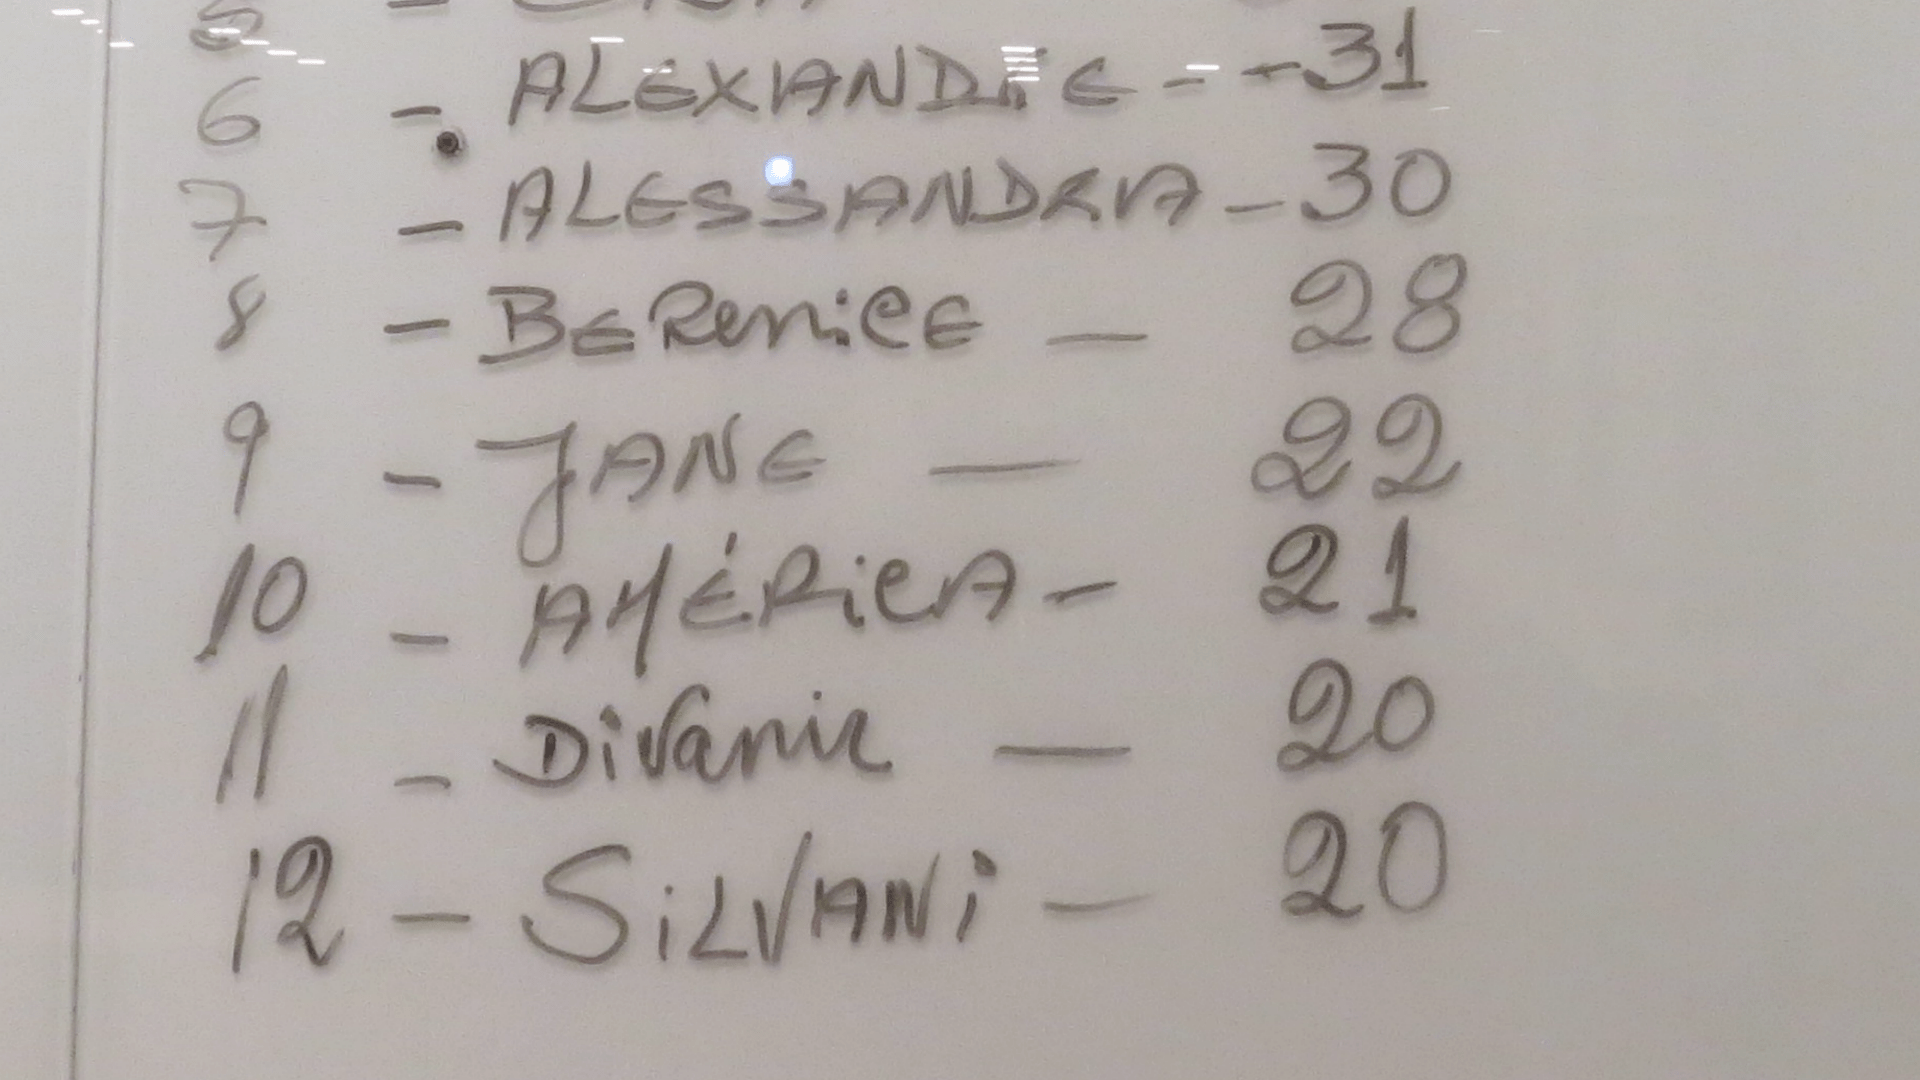 5 -
6 - ALEXANDRE - - 31
7 - ALESSANDRA - 30
8 - BERENICE - 28
9 - JANE - 22
10 - AMÉRICA - 21
11 - Divanir - 20
12 - SiLVANi - 20